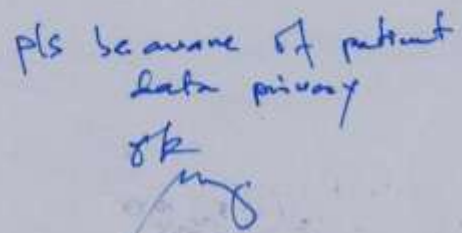 pls be aware of patient
data privacy
ok